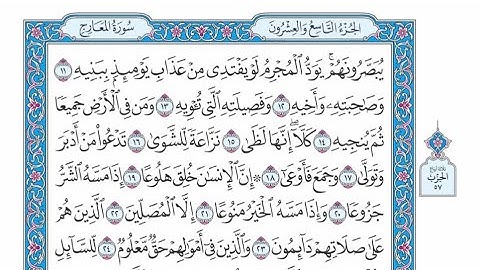 سُورَةُ المَعَارِجِ
الجُزْءُ التَّاسِعُ وَالعِشْرُونَ
يُبَصَّرُونَهُمْۚ يَوَدُّ ٱلْمُجْرِمُ لَوْ يَفْتَدِى مِنْ عَذَابِ يَوْمِئِذٍۭ بِبَنِيهِ ١١
وَصَٰحِبَتِهِۦ وَأَخِيهِ ١٢ وَفَصِيلَتِهِ ٱلَّتِى تُـْٔوِيهِ ١٣ وَمَن فِى ٱلْأَرْضِ جَمِيعًا
ثُمَّ يُنجِيهِ ١٤ كَلَّآۖ إِنَّهَا لَظَىٰ ١٥ نَزَّاعَةً لِّلشَّوَىٰ ١٦ تَدْعُوا۟ مَنْ أَدْبَرَ
وَتَوَلَّىٰ ١٧ وَجَمَعَ فَأَوْعَىٰٓ ١٨ ۞ إِنَّ ٱلْإِنسَٰنَ خُلِقَ هَلُوعًا ١٩ إِذَا مَسَّهُ ٱلشَّرُّ
جَزُوعًا ٢٠ وَإِذَا مَسَّهُ ٱلْخَيْرُ مَنُوعًا ٢١ إِلَّا ٱلْمُصَلِّينَ ٢٢ ٱلَّذِينَ هُمْ
عَلَىٰ صَلَاتِهِمْ دَآئِمُونَ ٢٣ وَٱلَّذِينَ فِىٓ أَمْوَٰلِهِمْ حَقٌّ مَّعْلُومٌ ٢٤ لِّلسَّآئِلِ
الحِزْب
٥٧